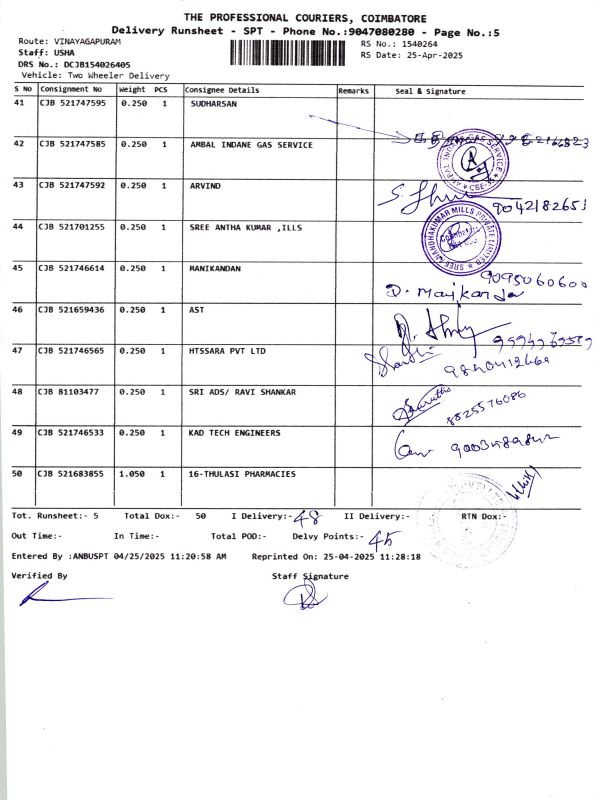 THE PROFESSIONAL COURIERS, COIMBATORE
Delivery Runsheet - SPT - Phone No.:9047080280 - Page No.:5
Route: VINAYAGAPURAM
RS No.: 1540264
Staff: USHA
RS Date: 25-Apr-2025
DRS No.: DCJB154026405
Vehicle: Two Wheeler Delivery
S No Consignment No Weight PCS Consignee Details Remarks Seal & Signature
41 CJB 521747595 0.250 1 SUDHARSAN
42 CJB 521747585 0.250 1 AMBAL INDANE GAS SERVICE
43 CJB 521747592 0.250 1 ARVIND
9042182651
44 CJB 521701255 0.250 1 SREE ANTHA KUMAR ,ILLS
SREE ANANDHAKUMAR MILLS PRIVATE LIMITED
45 CJB 521746614 0.250 1 MANIKANDAN
9095060600
D. Manikanda
46 CJB 521659436 0.250 1 AST
47 CJB 521746565 0.250 1 HTSSARA PVT LTD
9840412669
48 CJB 81103477 0.250 1 SRI ADS/ RAVI SHANKAR
8825576086
49 CJB 521746533 0.250 1 KAD TECH ENGINEERS
50 CJB 521683855 1.050 1 16-THULASI PHARMACIES
Tot. Runsheet:- 5 Total Dox:- 50 I Delivery:- 48 II Delivery:- RTN Dox:-
Out Time:- In Time:- Total POD:- Delvy Points:- 45
Entered By :ANBUSPT 04/25/2025 11:20:58 AM Reprinted On: 25-04-2025 11:28:18
Verified By Staff Signature